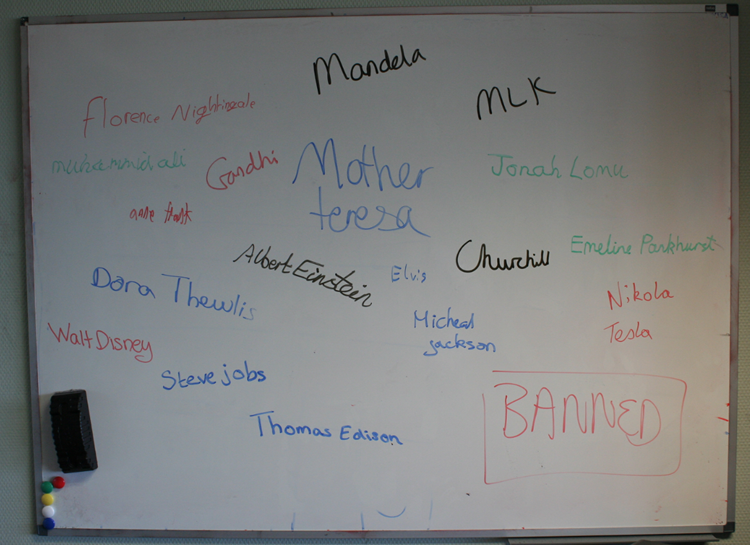 Mandela
MLK
florence Nightingale
muhammid ali
Gandhi
Mother
teresa
Jonah Lomu
anne frank
Albert Einstein
Elvis
Churchill
Emeline Pankhurst
Dora Thewlis
Nikola
Tesla
Micheal
jackson
Walt Disney
Steve jobs
BANNED
Thomas Edison